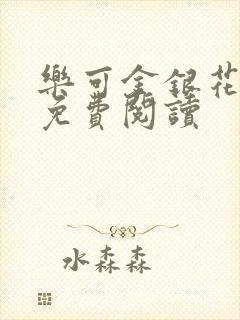 樂可金銀花
免費閱讀
水森森